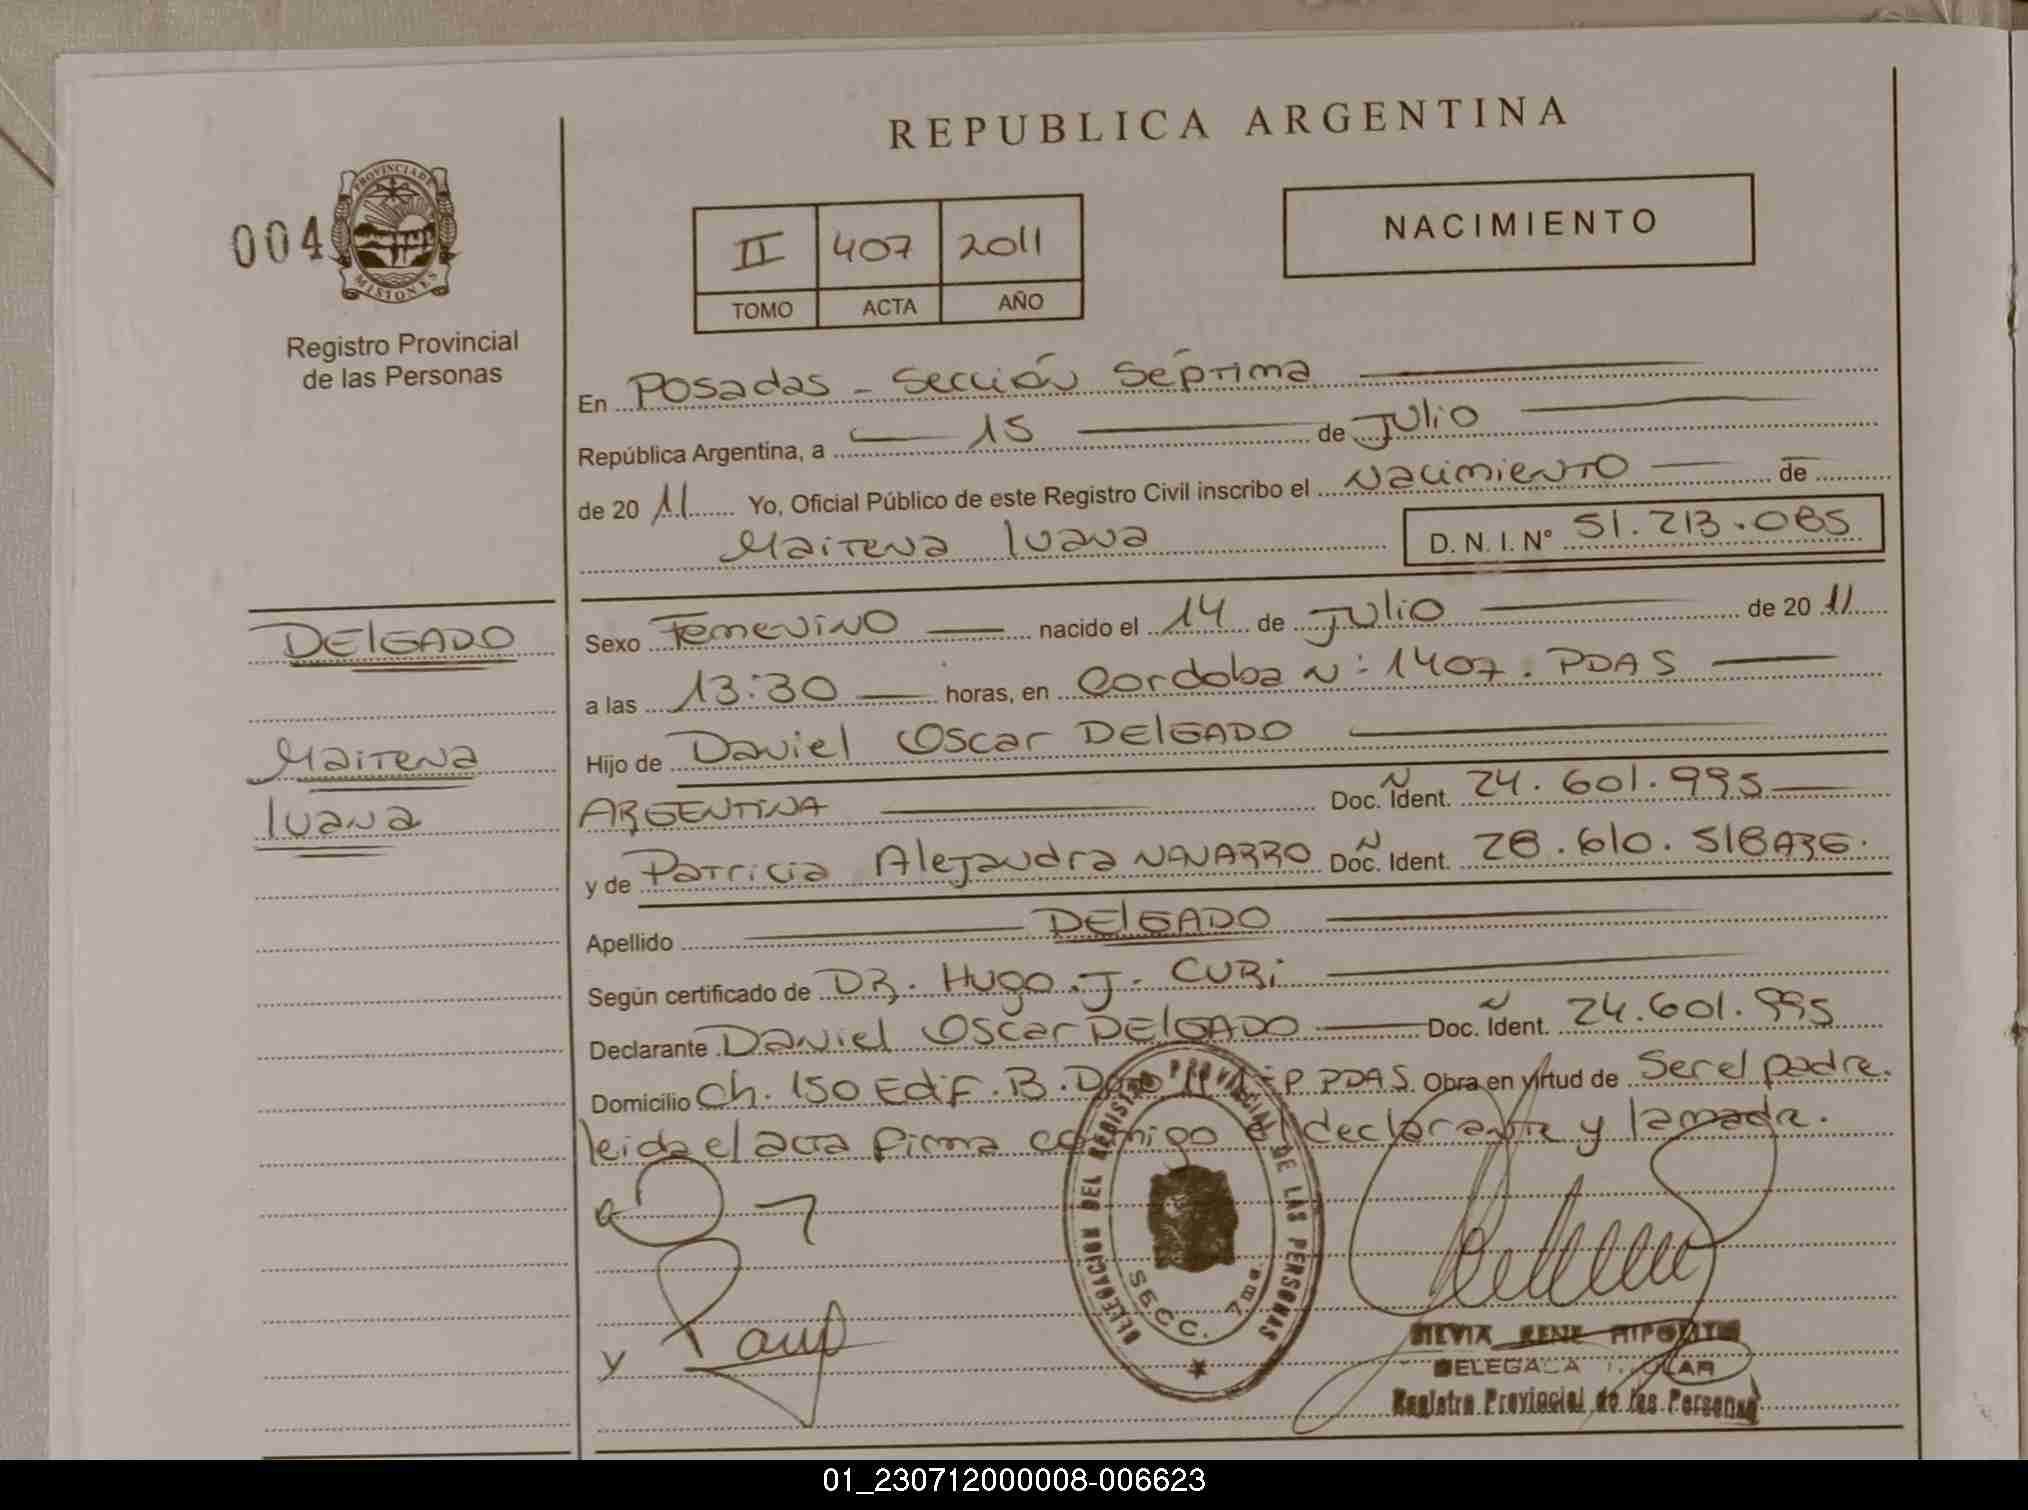 REPUBLICA ARGENTINA
004
PROVINCIA DE
MISIONES
Registro Provincial
de las Personas
II 407 2011
TOMO ACTA AÑO
NACIMIENTO
En Posadas - Sección Séptima
República Argentina, a 15 de Julio
de 20 11 Yo, Oficial Público de este Registro Civil inscribo el Nacimiento de
Maitena Ivana D. N. I. Nº 51.213.085
DELGADO
Maitena
Ivana
Sexo Femenino nacido el 14 de Julio de 20 11
a las 13:30 horas, en Cordoba N: 1407. PDAS
Hijo de Daniel Oscar DELGADO
ARGENTINA Doc. Ident. 24.601.995
y de Patricia Alejandra NAVARRO Doc. Ident. 28.610.518 ARG.
Apellido DELGADO
Según certificado de DR. HUGO. J. CURI
Declarante Daniel Oscar DELGADO Doc. Ident. 24.601.995
Domicilio Ch. 150 Edif. B. PDAS. Obra en virtud de Ser el padre.
leida el acta firma conmigo el declarante y la madre.
y
DELEGACION DEL REGISTRO PROVINCIAL DE LAS PERSONAS
SECC. 7ma.
SILVIA RENE HIPOLITO
DELEGADA
Registro Provincial de las Personas
01_230712000008-006623